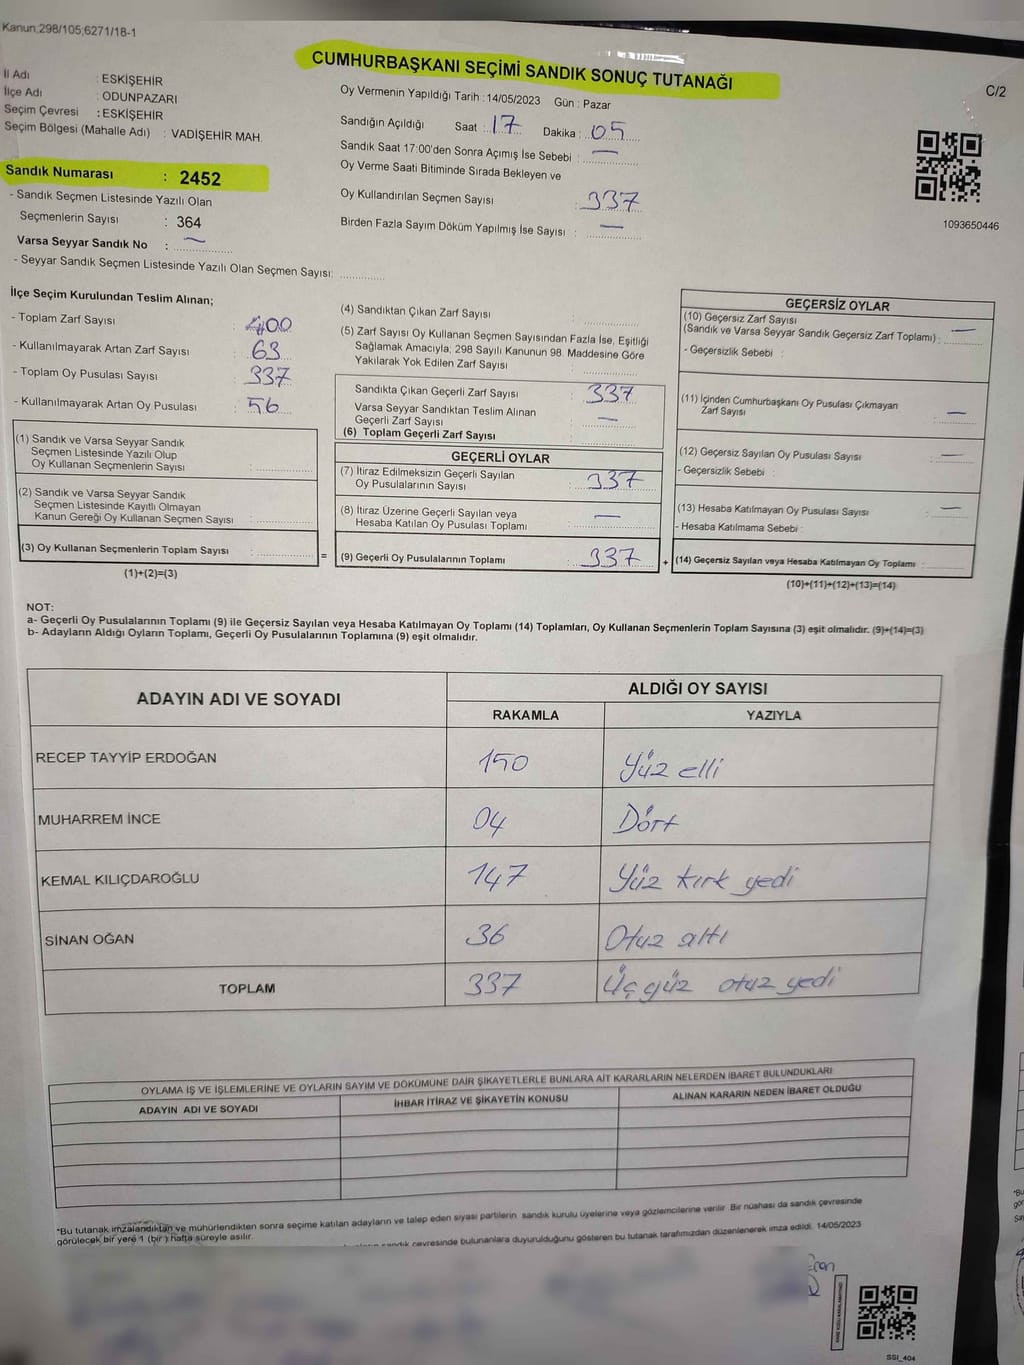 Kanun.298/105;6271/18-1
CUMHURBAŞKANI SEÇİMİ SANDIK SONUÇ TUTANAĞI
C/2
İl Adı : ESKİŞEHİR
İlçe Adı : ODUNPAZARI
Seçim Çevresi : ESKİŞEHİR
Seçim Bölgesi (Mahalle Adı) : VADİŞEHİR MAH.
Sandık Numarası : 2452
- Sandık Seçmen Listesinde Yazılı Olan
Seçmenlerin Sayısı : 364
Varsa Seyyar Sandık No : —
- Seyyar Sandık Seçmen Listesinde Yazılı Olan Seçmen Sayısı:
Oy Vermenin Yapıldığı Tarih : 14/05/2023 Gün : Pazar
Sandığın Açıldığı Saat : 17 Dakika : 05
Sandık Saat 17:00'den Sonra Açımış İse Sebebi : —
Oy Verme Saati Bitiminde Sırada Bekleyen ve
Oy Kullandırılan Seçmen Sayısı : 337
Birden Fazla Sayım Döküm Yapılmış İse Sayısı : —
1093650446
İlçe Seçim Kurulundan Teslim Alınan;
- Toplam Zarf Sayısı : 400
- Kullanılmayarak Artan Zarf Sayısı : 63
- Toplam Oy Pusulası Sayısı : 337
- Kullanılmayarak Artan Oy Pusulası : 56
(1) Sandık ve Varsa Seyyar Sandık
Seçmen Listesinde Yazılı Olup
Oy Kullanan Seçmenlerin Sayısı :
(2) Sandık ve Varsa Seyyar Sandık
Seçmen Listesinde Kayıtlı Olmayan
Kanun Gereği Oy Kullanan Seçmen Sayısı :
(3) Oy Kullanan Seçmenlerin Toplam Sayısı :
(1)+(2)=(3)
(4) Sandıktan Çıkan Zarf Sayısı :
(5) Zarf Sayısı Oy Kullanan Seçmen Sayısından Fazla İse, Eşitliği
Sağlamak Amacıyla, 298 Sayılı Kanunun 98. Maddesine Göre
Yakılarak Yok Edilen Zarf Sayısı :
Sandıkta Çıkan Geçerli Zarf Sayısı : 337
Varsa Seyyar Sandıktan Teslim Alınan
Geçerli Zarf Sayısı : —
(6) Toplam Geçerli Zarf Sayısı :
GEÇERLİ OYLAR
(7) İtiraz Edilmeksizin Geçerli Sayılan
Oy Pusulalarının Sayısı : 337
(8) İtiraz Üzerine Geçerli Sayılan veya
Hesaba Katılan Oy Pusulası Toplamı : —
= (9) Geçerli Oy Pusulalarının Toplamı : 337
GEÇERSİZ OYLAR
(10) Geçersiz Zarf Sayısı
(Sandık ve Varsa Seyyar Sandık Geçersiz Zarf Toplamı) : —
- Geçersizlik Sebebi :
(11) İçinden Cumhurbaşkanı Oy Pusulası Çıkmayan
Zarf Sayısı : —
(12) Geçersiz Sayılan Oy Pusulası Sayısı : —
- Geçersizlik Sebebi :
(13) Hesaba Katılmayan Oy Pusulası Sayısı : —
- Hesaba Katılmama Sebebi :
+ (14) Geçersiz Sayılan veya Hesaba Katılmayan Oy Toplamı :
(10)+(11)+(12)+(13)=(14)
NOT:
a- Geçerli Oy Pusulalarının Toplamı (9) ile Geçersiz Sayılan veya Hesaba Katılmayan Oy Toplamı (14) Toplamları, Oy Kullanan Seçmenlerin Toplam Sayısına (3) eşit olmalıdır. (9)+(14)=(3)
b- Adayların Aldığı Oyların Toplamı, Geçerli Oy Pusulalarının Toplamına (9) eşit olmalıdır.
ADAYIN ADI VE SOYADI
ALDIĞI OY SAYISI
RAKAMLA YAZIYLA
RECEP TAYYİP ERDOĞAN 150 Yüz elli
MUHARREM İNCE 04 Dört
KEMAL KILIÇDAROĞLU 147 Yüz kırk yedi
SİNAN OĞAN 36 Otuz altı
TOPLAM 337 Üçyüz otuz yedi
OYLAMA İŞ VE İŞLEMLERİNE VE OYLARIN SAYIM VE DÖKÜMÜNE DAİR ŞİKAYETLERLE BUNLARA AİT KARARLARIN NELERDEN İBARET BULUNDUKLARI
ADAYIN ADI VE SOYADI İHBAR İTİRAZ VE ŞİKAYETİN KONUSU ALINAN KARARIN NEDEN İBARET OLDUĞU
*Bu tutanak imzalandıktan ve mühürlendikten sonra seçime katılan adayların ve talep eden siyasi partilerin sandık kurulu üyelerine veya gözlemcilerine verilir. Bir nüshası da sandık çevresinde
görülecek bir yere 1 (bir ) hafta süreyle asılır.
sandık çevresinde bulunanlara duyurulduğunu gösteren bu tutanak tarafımızdan düzenlenerek imza edildi. 14/05/2023
SSI_404